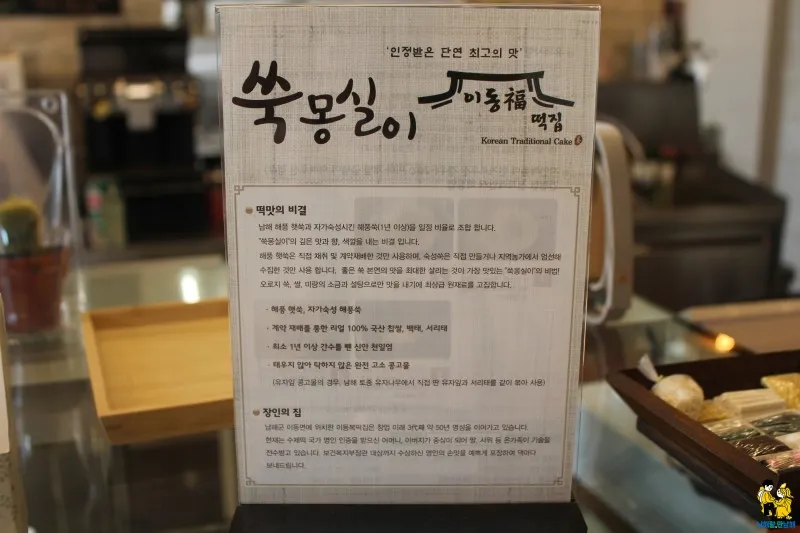 '인정받은 단연 최고의 맛'
쑥몽실이
이동福
떡집
Korean Traditional Cake
떡맛의 비결
남해 해풍 햇쑥과 자가숙성시킨 해풍쑥(1년 이상)을 일정 비율로 조합 합니다.
"쑥몽실이"의 깊은 맛과 향, 색깔을 내는 비결 입니다.
해풍 햇쑥은 직접 채취 및 계약재배한 것만 사용하며, 숙성쑥은 직접 만들거나 지역농가에서 엄선해
수집한 것만 사용 합니다. 좋은 쑥 본연의 맛을 최대한 살리는 것이 가장 맛있는 "쑥몽실이"의 비법!
오로지 쑥, 쌀, 미량의 소금과 설탕으로만 맛을 내기에 최상급 원재료를 고집합니다.
· 해풍 햇쑥, 자가숙성 해풍쑥
· 계약 재배를 통한 리얼 100% 국산 찹쌀, 백태, 서리태
· 최소 1년 이상 간수를 뺀 신안 천일염
· 태우지 않아 탁하지 않은 완전 고소 콩고물
(유자잎 콩고물의 경우, 남해 토종 유자나무에서 직접 딴 유자잎과 서리태를 같이 볶아 사용)
장인의 집
남해군 이동면에 위치한 이동복떡집은 창업 이래 3代째 약 50년 명성을 이어가고 있습니다.
현재는 수제떡 국가 명인 인증을 받으신 어머니, 아버지가 중심이 되어 딸, 사위 등 온가족이 기술을
전수받고 있습니다. 보건복지부장관 대상까지 수상하신 명인의 손맛을 예쁘게 포장하여 댁마다
보내드립니다.